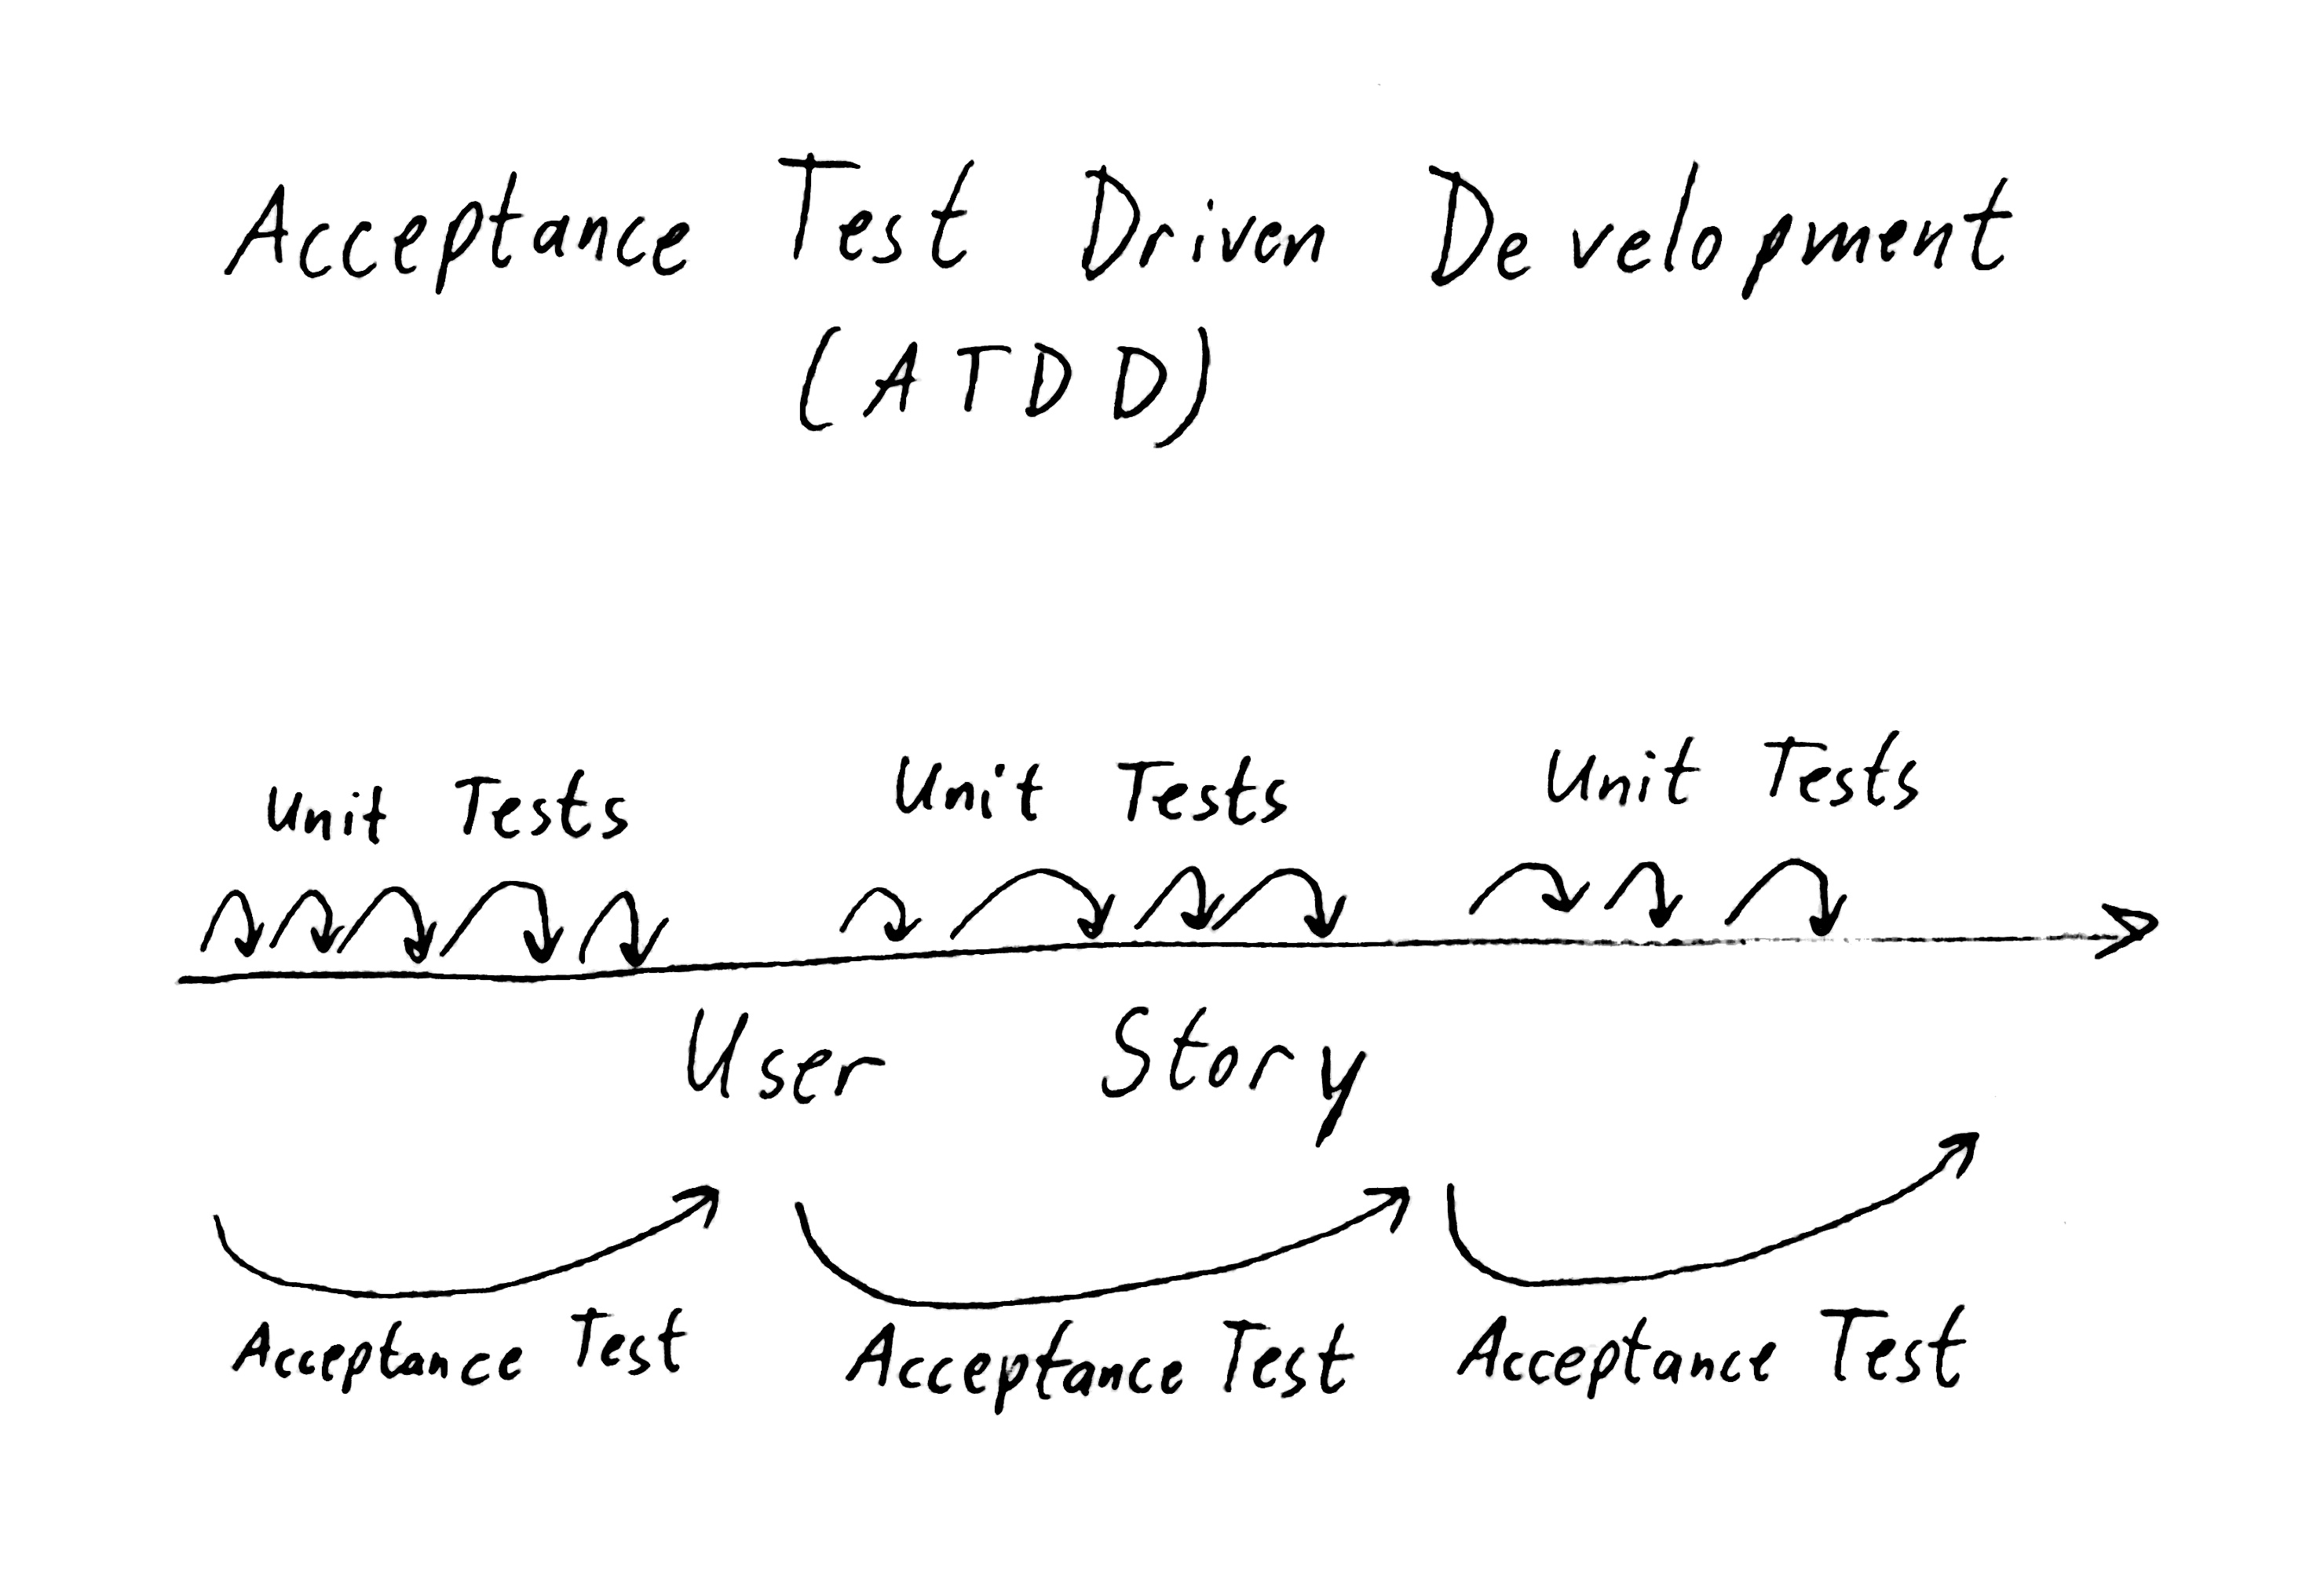 Acceptance Test Driven Development
(ATDD)
Unit Tests Unit Tests Unit Tests
User Story
Acceptance Test Acceptance Test Acceptance Test